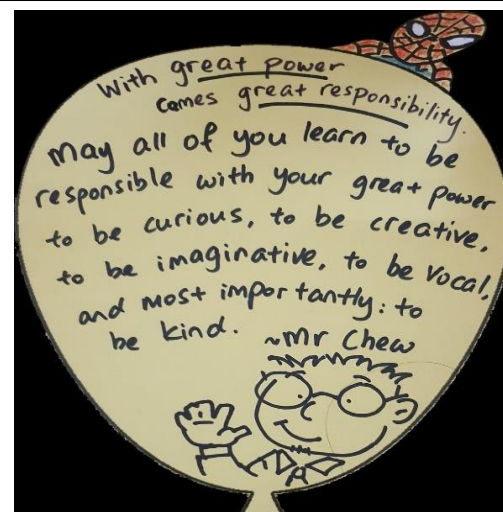 With great power
comes great responsibility.
May all of you learn to be
responsible with your great power
to be curious, to be creative,
to be imaginative, to be vocal,
and most importantly: to
be kind.
~Mr Chew